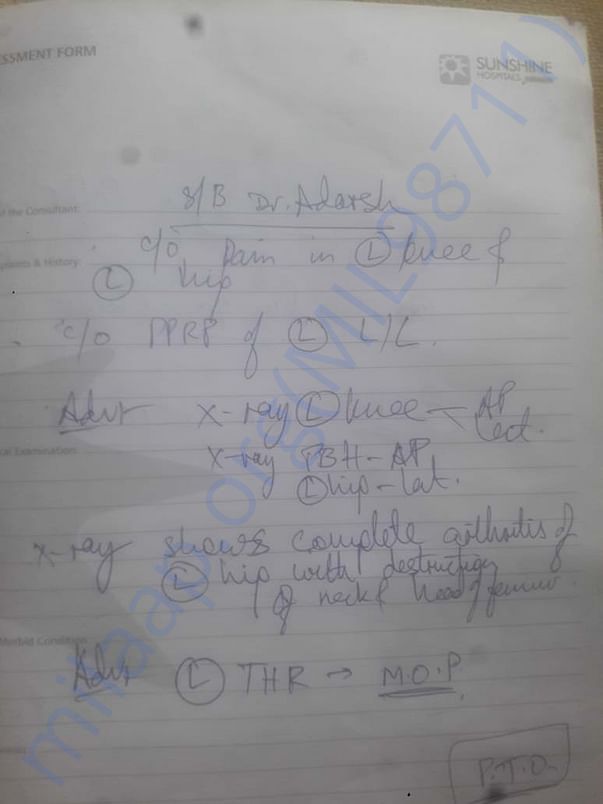 ESSMENT FORM
SUNSHINE
HOSPITALS
S/B Dr. Adarsh
of the Consultant:
c/o Pain in (L) knee &
plaints & History:
(L) hip
c/o PPRP of (L) L/L.
Advt X-ray (L) knee AP
Lat.
cal Examination:
X-ray PBH - AP,
(L) hip - Lat.
X-ray shows complete arthritis of
(L) hip with destruction
of neck & head of femur.
Morbid Condition
Advt (L) THR → M.O.P.
P.T.O.
milaap.org(MIL98711)